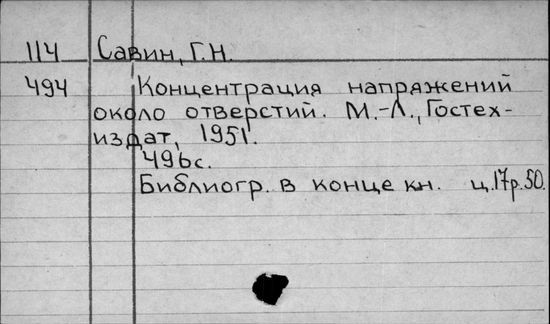 114 Савин, Г.Н.
494 Концентрация напряжений
около отверстий. М.-Л., Гостех-
издат, 1951.
496с.
Библиогр. в конце кн. ц.17р.50.